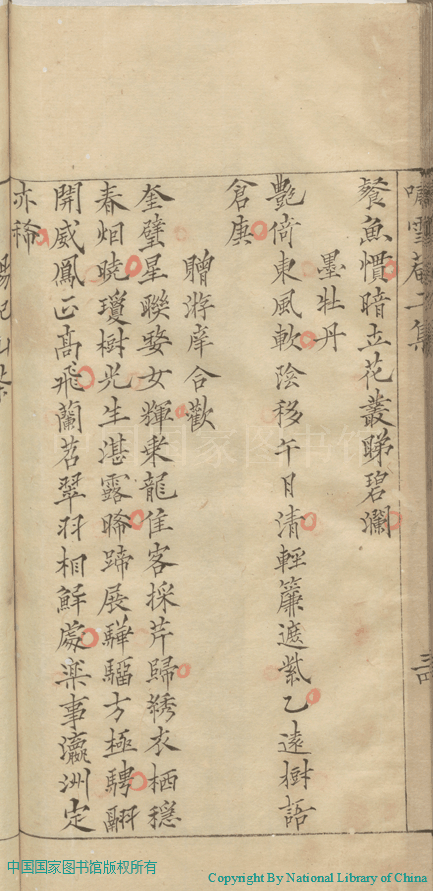 嘯雪菴二集
餐魚慣暗立花叢睇碧瀾
墨牡丹
艷倚東風軟陰移午日清輕簾遮紫乙遠樹語
倉庚
贈游庠合歡
奎璧星聯婺女輝乘龍佳客採芹歸綉衣栖穩
春烟曉瓊樹光生湛露晞蹄展驊騮方極騁翮
開威鳳正高飛蘭苕翠羽相鮮處樂事瀛洲定
亦稀
中国国家图书馆
中国国家图书馆版权所有
Copyright By National Library of China